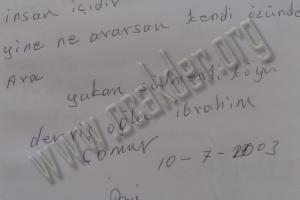 insan içidir
yine ne ararsan kendi özünde
Ara
yukarı köyü
derviş oğlu ibrahim
Comur
10-7-2003
www.ozakder.org